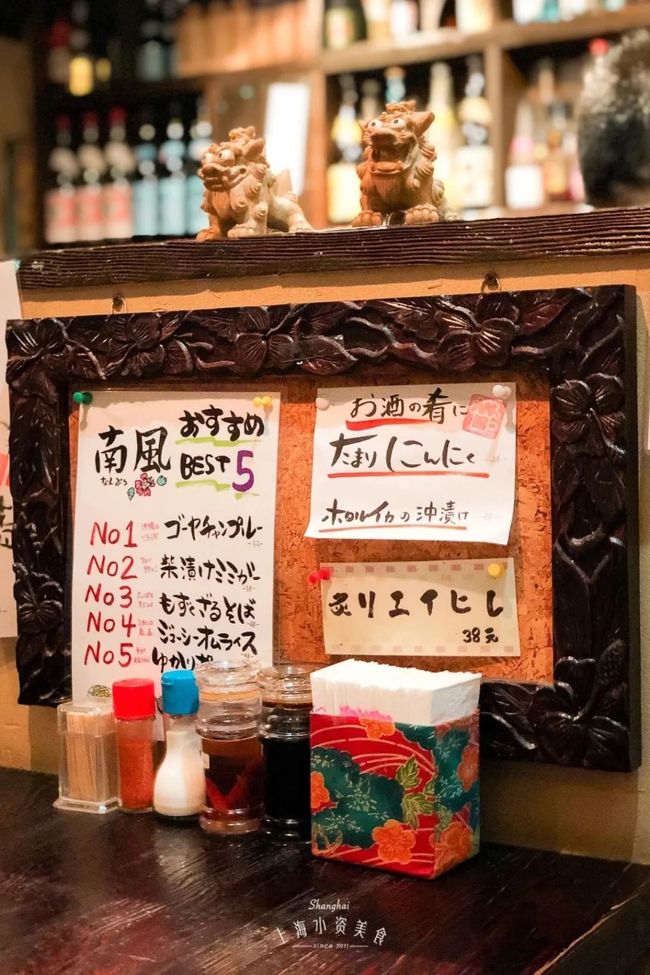 南風
なんぷう
おすすめ
BEST5
No1 ゴーヤチャンプルー
No2 柴漬けミミガー
No3 もずくざるそば
No4 ジューシーオムライス
No5 ゆかり
お酒の肴に
たまりにんにく
ホタルイカの沖漬け
炙りエイヒレ
38元
Shanghai
上海小资美食
since 2011